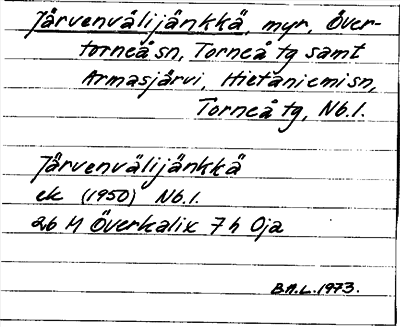 Järvenvälijänkkä, myr, Över-
torneå sn, Torneå tg samt
Armasjärvi, Hietaniemi sn,
Torneå tg, Nb.l.
Järvenvälijänkkä
ek (1950) Nb.l.
26 M Överkalix 7 h Oja
B.A.L. 1973.